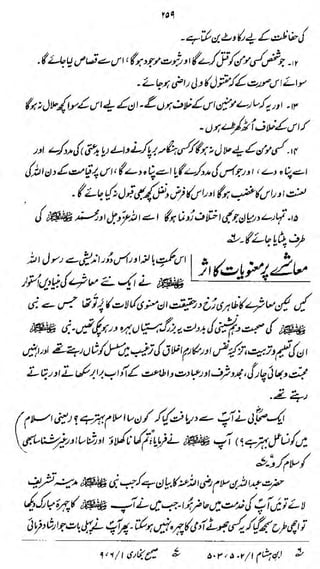 ۲۵۹
کی حفاظت کے لیے رکاوٹ بن سکتا ہے۔
۱۲۔ جو شخص کسی مومن کو قتل کرے گا اور ثبوت موجود ہو گا، اس سے قصاص لیا جائے گا۔
سوائے اس صورت کے کہ مقتول کا ولی راضی ہو جائے۔
۱۳۔ اور یہ کہ سارے مومنین اس کے خلاف ہوں گے۔ ان کے لیے اس کے سوا کچھ حلال نہ ہو گا
کہ اس کے خلاف اٹھ کھڑے ہوں۔
۱۴۔ کسی مومن کے لیے حلال نہ ہو گا کہ کسی ہنگامہ برپا کرنے والے (یا بدعتی) کی مدد کرے اور
اسے پناہ دے، اور جو اس کی مدد کرے گا یا اسے پناہ دے گا، اس پر قیامت کے دن اللہ کی
لعنت اور اس کا غضب ہو گا اور اس کا فرض و نفل کچھ بھی قبول نہ کیا جائے گا۔
۱۵۔ تمہارے درمیان جو بھی اختلاف رُونما ہو گا اسے اللہ عزوجل اور محمد ﷺ کی
طرف پلٹایا جائے گا۔
معاشرے پر معنویات کا اثر
اس حکمتِ بالغہ اور اس دُور اندیشی سے رسول اللہ
ﷺ نے ایک نئے معاشرے کی بنیادیں اُستوار
کیں لیکن معاشرے کا ظاہری رُخ درحقیقت ان معنوی کمالات کا پرتو تھا جس سے نبی
ﷺ کی صحبت و ہم نشینی کی بدولت یہ بزرگ ہستیاں بہرہ ور ہو چکی تھیں۔ نبی
ﷺ ان کی تعلیم و تربیت، تزکیۂ نفس اور مکارمِ اخلاق کی ترغیب میں مسلسل کوشاں رہتے تھے اور انہیں
محبت و بھائی چارگی، مجد و شرف اور عبادت و اطاعت کے آداب برابر سکھاتے اور بتاتے
رہتے تھے۔
ایک صحابیؓ نے آپ سے دریافت کیا کہ کون سا اسلام بہتر ہے؟ (یعنی اسلام
میں کونسا عمل بہتر ہے؟) آپ ﷺ نے فرمایا، تم کھانا کھلاؤ اور شناسا اور غیر شناسا سبھی
کو سلام کرو۔
حضرت عبداللہ بن سلام رضی اللہ عنہ کا بیان ہے کہ جب نبی ﷺ مدینہ تشریف
لائے تو میں آپ کی خدمت میں حاضر ہُوا، جب میں نے آپ ﷺ کا چہرۂ مبارک دیکھا
تو اچھی طرح سمجھ گیا کہ یہ کسی جھوٹے آدمی کا چہرہ نہیں ہو سکتا۔ پھر آپؐ نے پہلی بات جو ارشاد فرمائی
ابن ہشام ۱/۵۰۲، ۵۰۳ صحیح بخاری ۱/۶، ۹